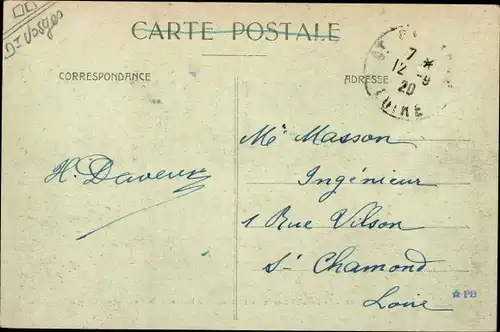 Dt Vosges
CARTE POSTALE
CORRESPONDANCE
ADRESSE
7 *
12 -9
20
LOIRE
Mr Masson
H. Daveux
Ingénieur
1 Rue Vilson
St Chamond
Loire
PB